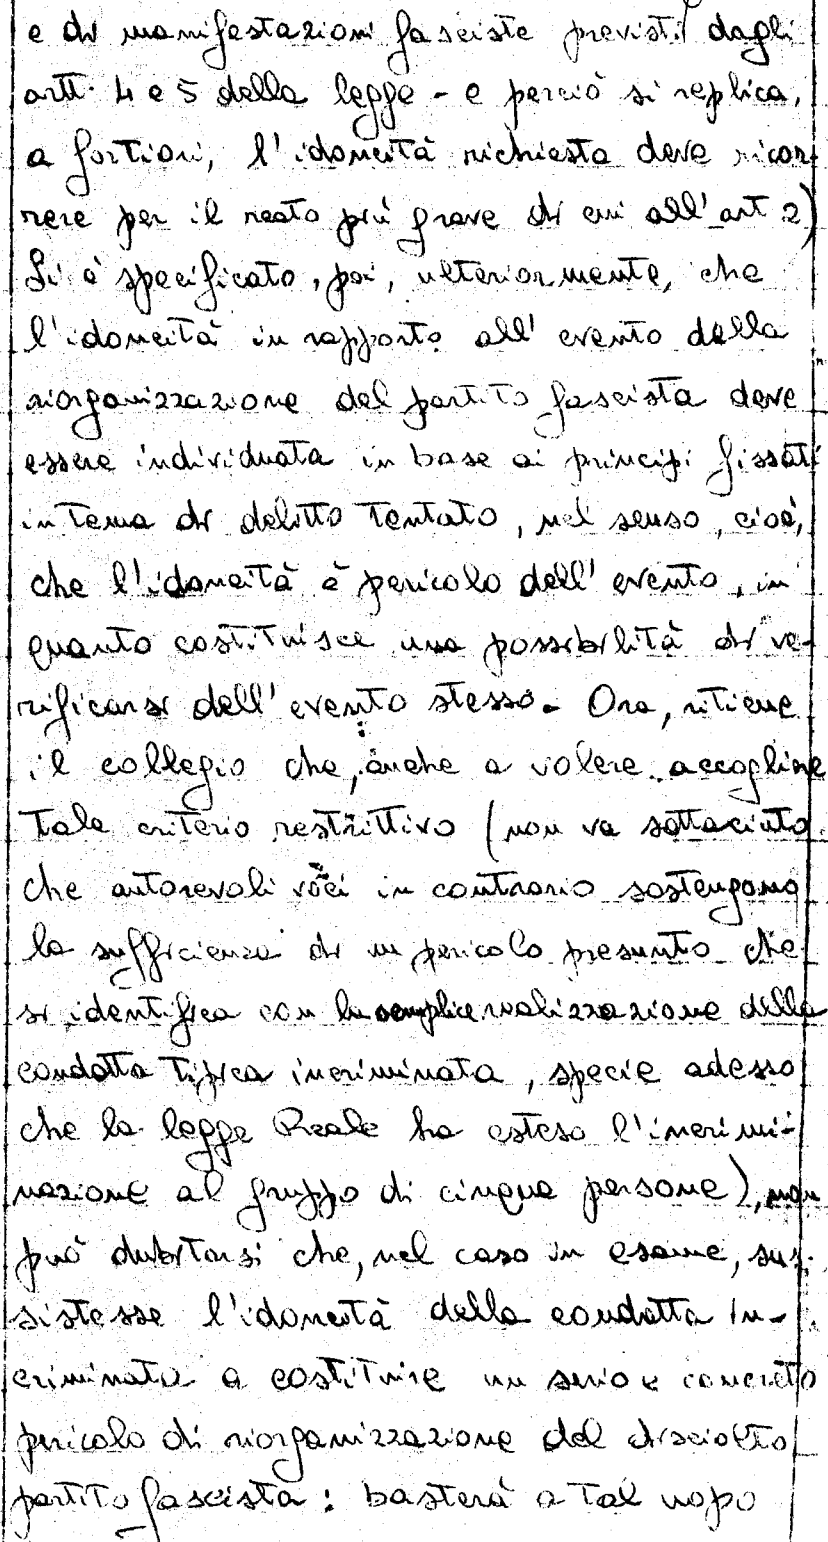 e di manifestazioni fasciste previsti dagli
artt. 4 e 5 della legge - e perciò si replica,
a fortiori, l'idoneità richiesta deve ricor-
rere per il reato più grave di cui all'art 2)
Si è specificato, poi, ulteriormente, che
l'idoneità in rapporto all'evento della
riorganizzazione del partito fascista deve
essere individuata in base ai principi fissati
in Tema di delitto Tentato, nel senso, cioè,
che l'idoneità è pericolo dell'evento, in
quanto costituisce una possibilità di ve-
rificarsi dell'evento stesso. Ora, ritiene
il collegio che, anche a volere accogliere
Tale criterio restrittivo (non va sottaciuto
che autorevoli voci in contrario sostengono
la sufficienza di un pericolo presunto che
si identifica con la semplice realizzazione della
condotta Tipica incriminata, specie adesso
che la legge Reale ha esteso l'incrimi-
nazione al gruppo di cinque persone), non
può dubitarsi che, nel caso in esame, sus-
sistesse l'idoneità della condotta in-
criminata a costituire un serio e concreto
pericolo di riorganizzazione del disciolto
partito fascista: basterà a Tal uopo